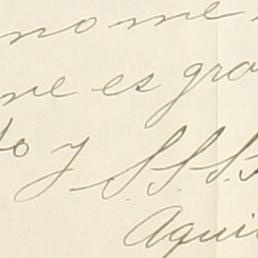 no me
me es gra
to y S.S.S.
Aqui